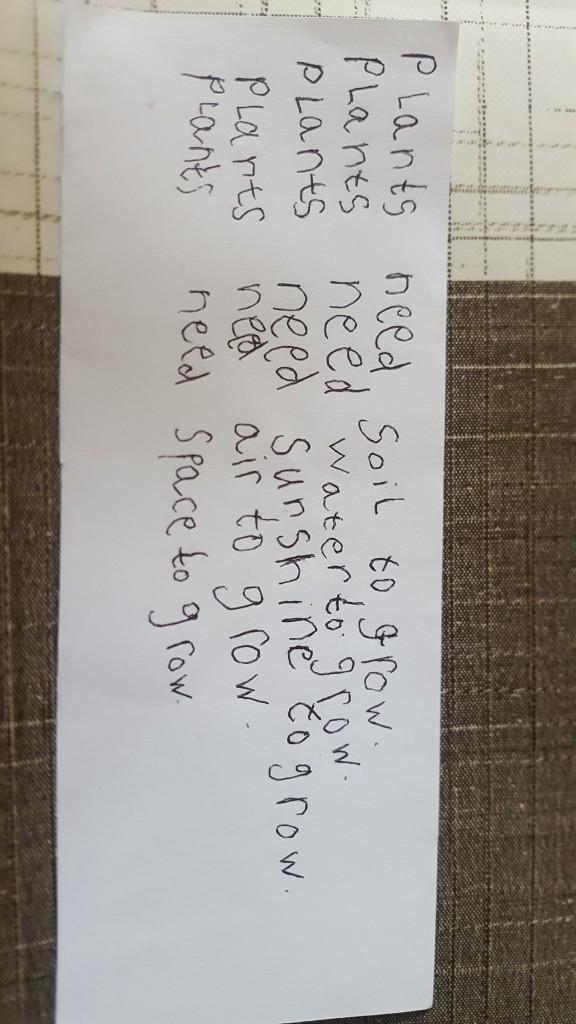 PLants need Soil to grow.
PLants need water to grow.
PLants need Sunshine to grow.
PLants need air to grow.
PLants need Space to grow.